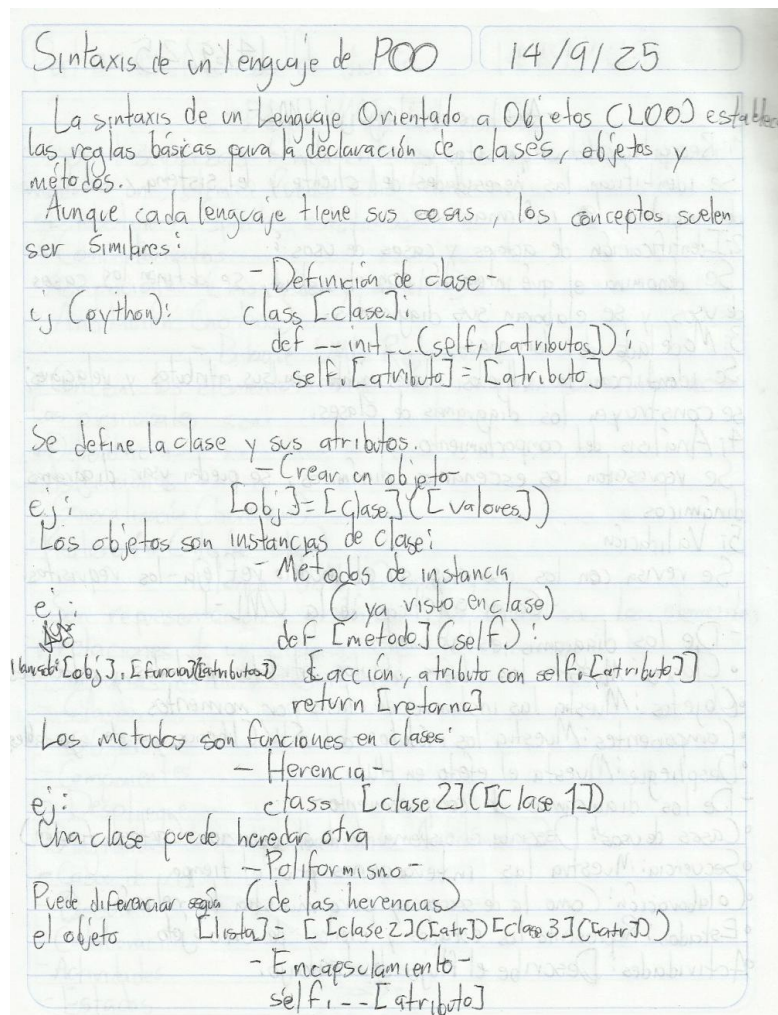 Sintaxis de un lenguaje de POO 14/9/25
La sintaxis de un Lenguaje Orientado a Objetos (LOO) establece
las reglas básicas para la declaración de clases, objetos y
métodos.
Aunque cada lenguaje tiene sus cosas, los conceptos suelen
ser similares:
- Definición de clase -
ej (python): class [clase]:
def __init__(self, [atributos]):
self.[atributo] = [atributo]
Se define la clase y sus atributos.
- Crear un objeto -
ej: [obj] = [clase]([valores])
Los objetos son instancias de clase:
- Métodos de instancia
ej: (ya visto en clase)
def [metodo](self):
[obj].[función]([atributos]) [acción, atributo con self.[atributo]]
return [retorno]
Los metodos son funciones en clases:
- Herencia -
ej: class [clase 2]([Clase 1])
Una clase puede heredar otra
- Poliformismo -
Puede diferenciar según (de las herencias)
el objeto [lista] = [[clase 2]([atr])[clase 3]([atr]))
- Encapsulamiento -
self.__[atributo]